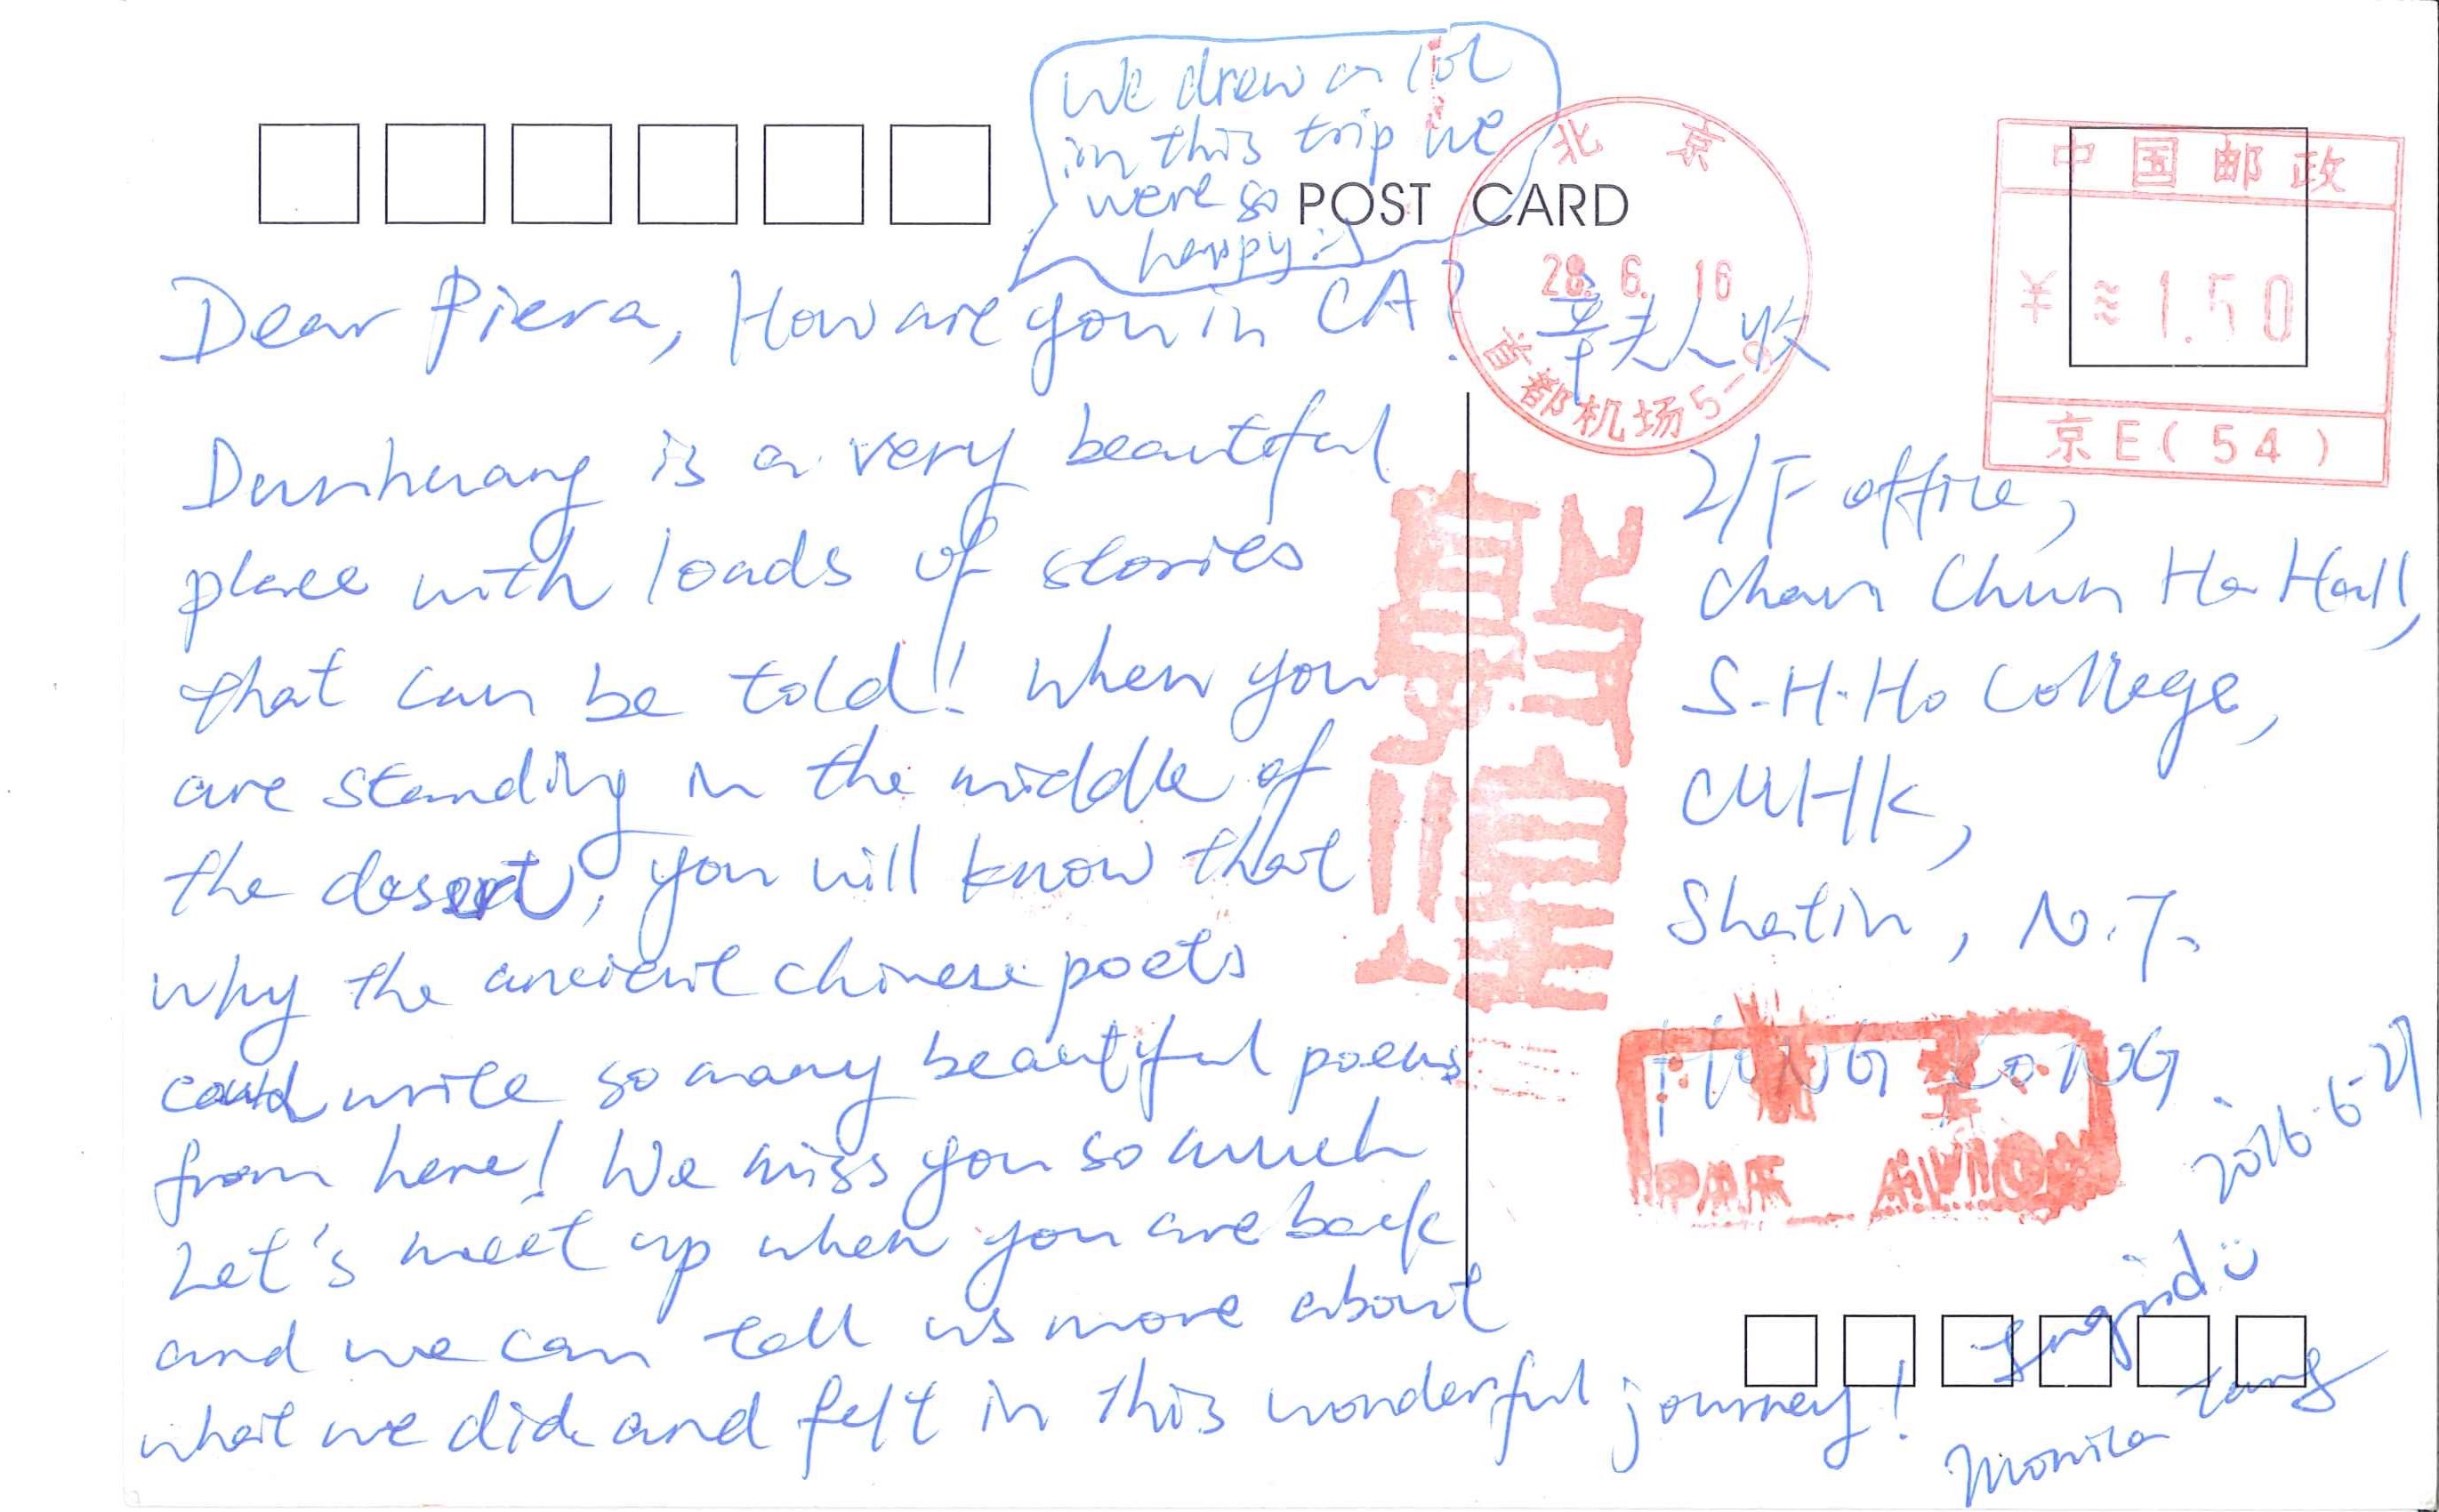 We drew a lot
in this trip we
were so
happy :)
POST CARD
北京
28. 6. 16
首都机场5-
中国邮政
¥ ≈1.50
京E(54)
Dear Piera, How are you in CA?
Dunhuang is a very beautiful
place with loads of stories
that can be told! When you
are standing in the middle of
the desert, you will know that
why the ancient Chinese poets
could write so many beautiful poems
from here! We miss you so much
Let's meet up when you are back
and we can tell us more about
what we did and felt in this wonderful journey!
辛夫人收
2/F office,
Chan Chun Ha Hall,
S.H.Ho College,
CUHK,
Shatin, N.T.
HONG KONG
敦煌
PAR AVION
2016.6.21
Ingrid
Monica Tang